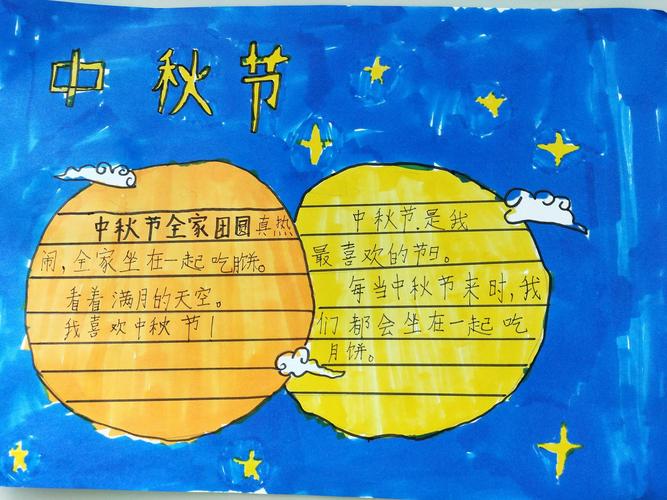 中秋节
中秋节全家团圆真热
闹,全家坐在一起吃月饼。
看着满月的天空。
我喜欢中秋节!
中秋节.是我
最喜欢的节日。
每当中秋节来时,我
们都会坐在一起吃
月饼。